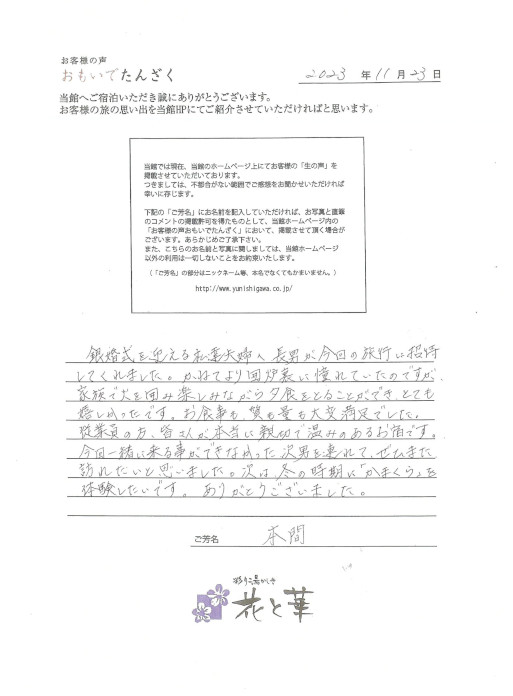 お客様の声
おもいでたんざく
2023 年 11 月 23 日
当館へご宿泊いただき誠にありがとうございます。
お客様の旅の思い出を当館HPにてご紹介させていただければと思います。
当館では現在、当館のホームページ上にてお客様の「生の声」を
掲載させていただいております。
つきましては、不都合がない範囲でご感想をお聞かせいただければ
幸いに存じます。
下記の「ご芳名」にお名前を記入していただければ、お写真と直筆
のコメントの掲載許可を得たものとして、当館ホームページ内の
「お客様の声おもいでたんざく」において、掲載させて頂く場合が
ございます。あらかじめご了承下さい。
また、こちらのお名前と写真に関しましては、当館ホームページ
以外の利用は一切しないことをお約束いたします。
（「ご芳名」の部分はニックネーム等、本名でなくてもかまいません。）
http://www.yunishigawa.co.jp/
銀婚式を迎える私達夫婦へ長男が今回の旅行に招待
してくれました。かねてより囲炉裏に憧れていたのですが、
家族で火を囲み楽しみながら夕食をとることができ、とても
嬉しかったです。お食事も、質も量も大変満足でした。
従業員の方、皆さんが本当に親切で温みのあるお宿です。
今回一緒に来る事ができなかった次男を連れて、ぜひまた
訪れたいと思いました。次は、冬の時期に「かまくら」を
体験したいです。ありがとうございました。
ご芳名 本間
彩り湯かしき
花と華